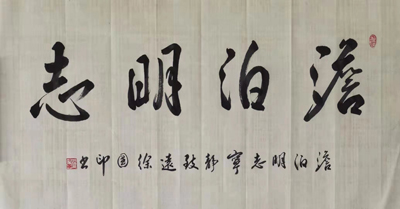 澹泊明志
澹泊明志寧靜致遠徐印书